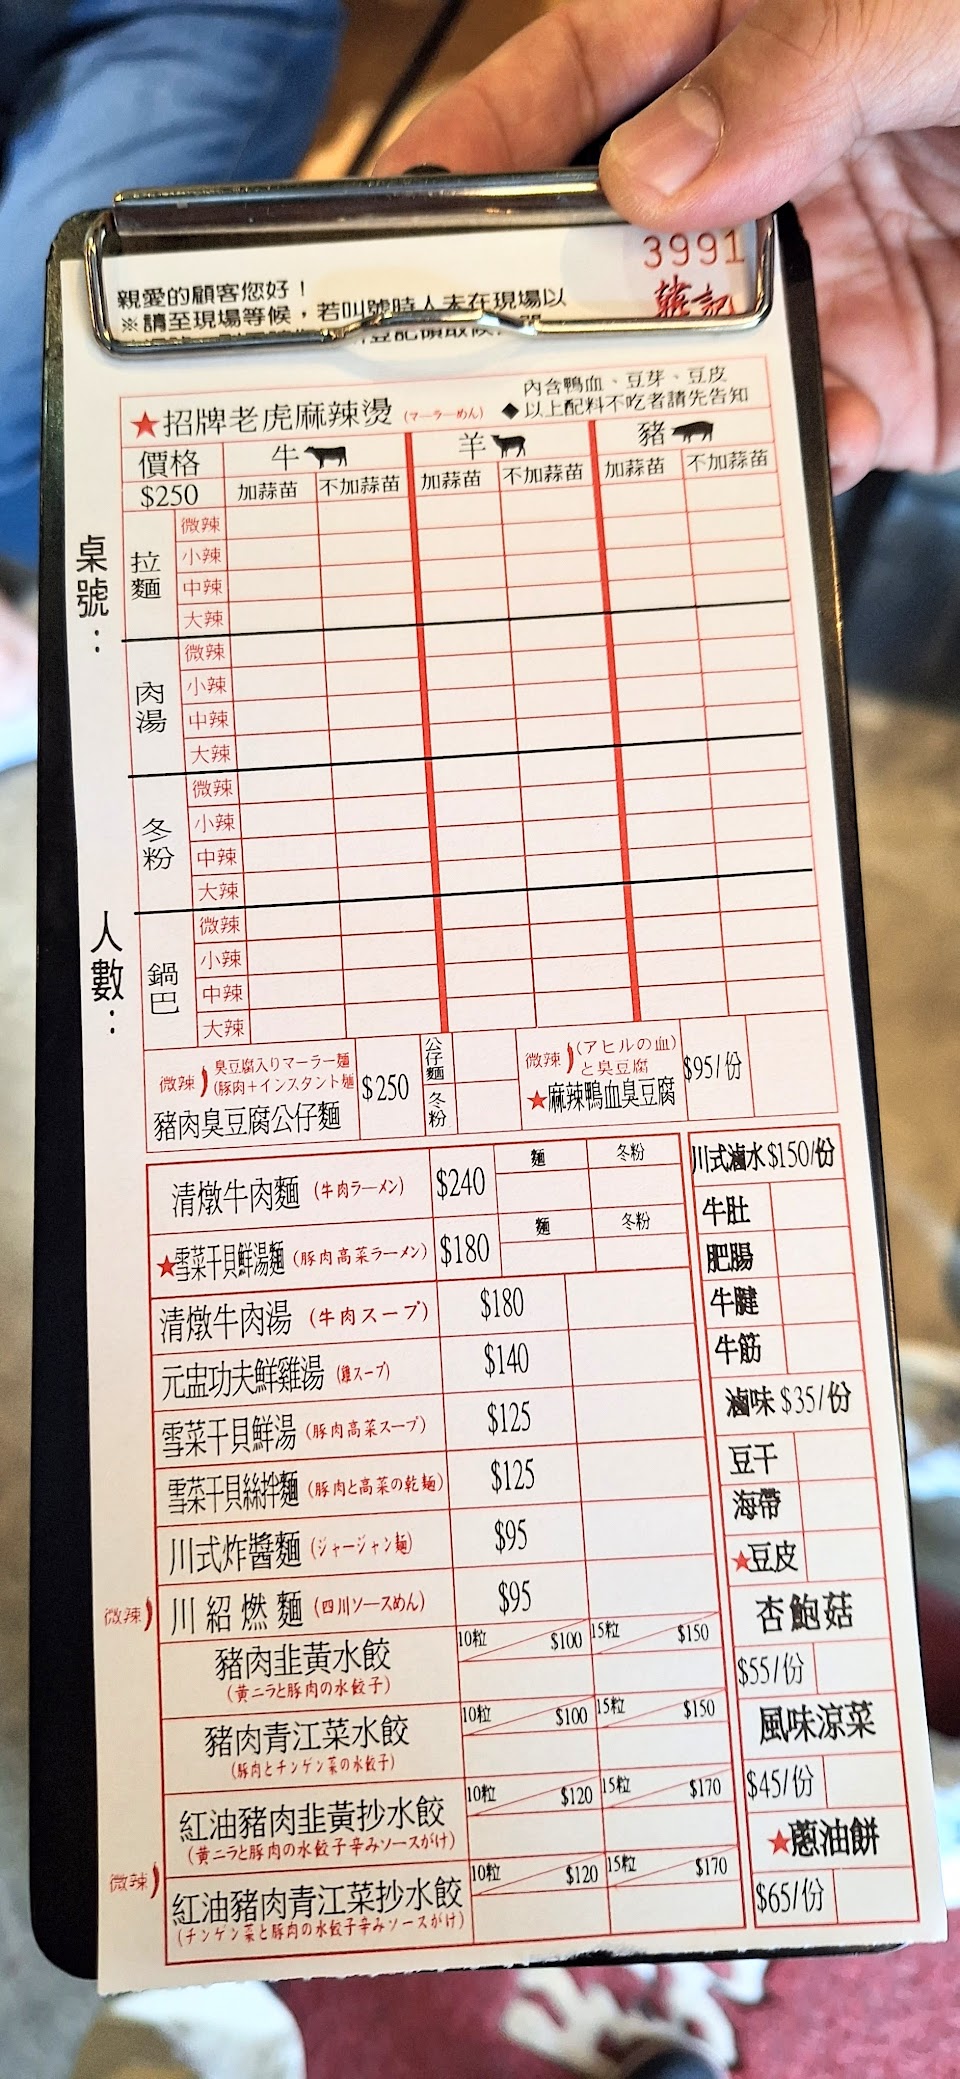 3991
韓記
親愛的顧客您好！
※請至現場等候，若叫號時人未在現場以
★招牌老虎麻辣燙 (マーラーめん)
內含鴨血、豆芽、豆皮
◆以上配料不吃者請先告知
價格 牛 羊 豬
$250 加蒜苗 不加蒜苗 加蒜苗 不加蒜苗 加蒜苗 不加蒜苗
桌號：
拉麵
微辣
小辣
中辣
大辣
肉湯
微辣
小辣
中辣
大辣
冬粉
微辣
小辣
中辣
大辣
人數：
鍋巴
微辣
小辣
中辣
大辣
微辣 臭豆腐入りマーラー麺
(豚肉＋インスタント麺
豬肉臭豆腐公仔麵 $250
公仔麵
冬粉
微辣 (アヒルの血)
と臭豆腐
★麻辣鴨血臭豆腐 $95/份
清燉牛肉麵 (牛肉ラーメン) $240 麵 冬粉
★雪菜干貝鮮湯麵 (豚肉高菜ラーメン) $180 麵 冬粉
清燉牛肉湯 (牛肉スープ) $180
元盅功夫鮮雞湯 (雞スープ) $140
雪菜干貝鮮湯 (豚肉高菜スープ) $125
雪菜干貝絲拌麵 (豚肉と高菜の乾麺) $125
川式炸醬麵 (ジャージャン麺) $95
微辣 川紹燃麵 (四川ソースめん) $95
豬肉韭黃水餃 10粒 $100 15粒 $150
(黄ニラと豚肉の水餃子)
豬肉青江菜水餃 10粒 $100 15粒 $150
(豚肉とチンゲン菜の水餃子)
紅油豬肉韭黃抄水餃 10粒 $120 15粒 $170
(黄ニラと豚肉の水餃子辛みソースがけ)
微辣 紅油豬肉青江菜抄水餃 10粒 $120 15粒 $170
(チンゲン菜と豚肉の水餃子辛みソースがけ)
川式滷水$150/份
牛肚
肥腸
牛腱
牛筋
滷味$35/份
豆干
海帶
★豆皮
杏鮑菇
$55/份
風味涼菜
$45/份
★蔥油餅
$65/份